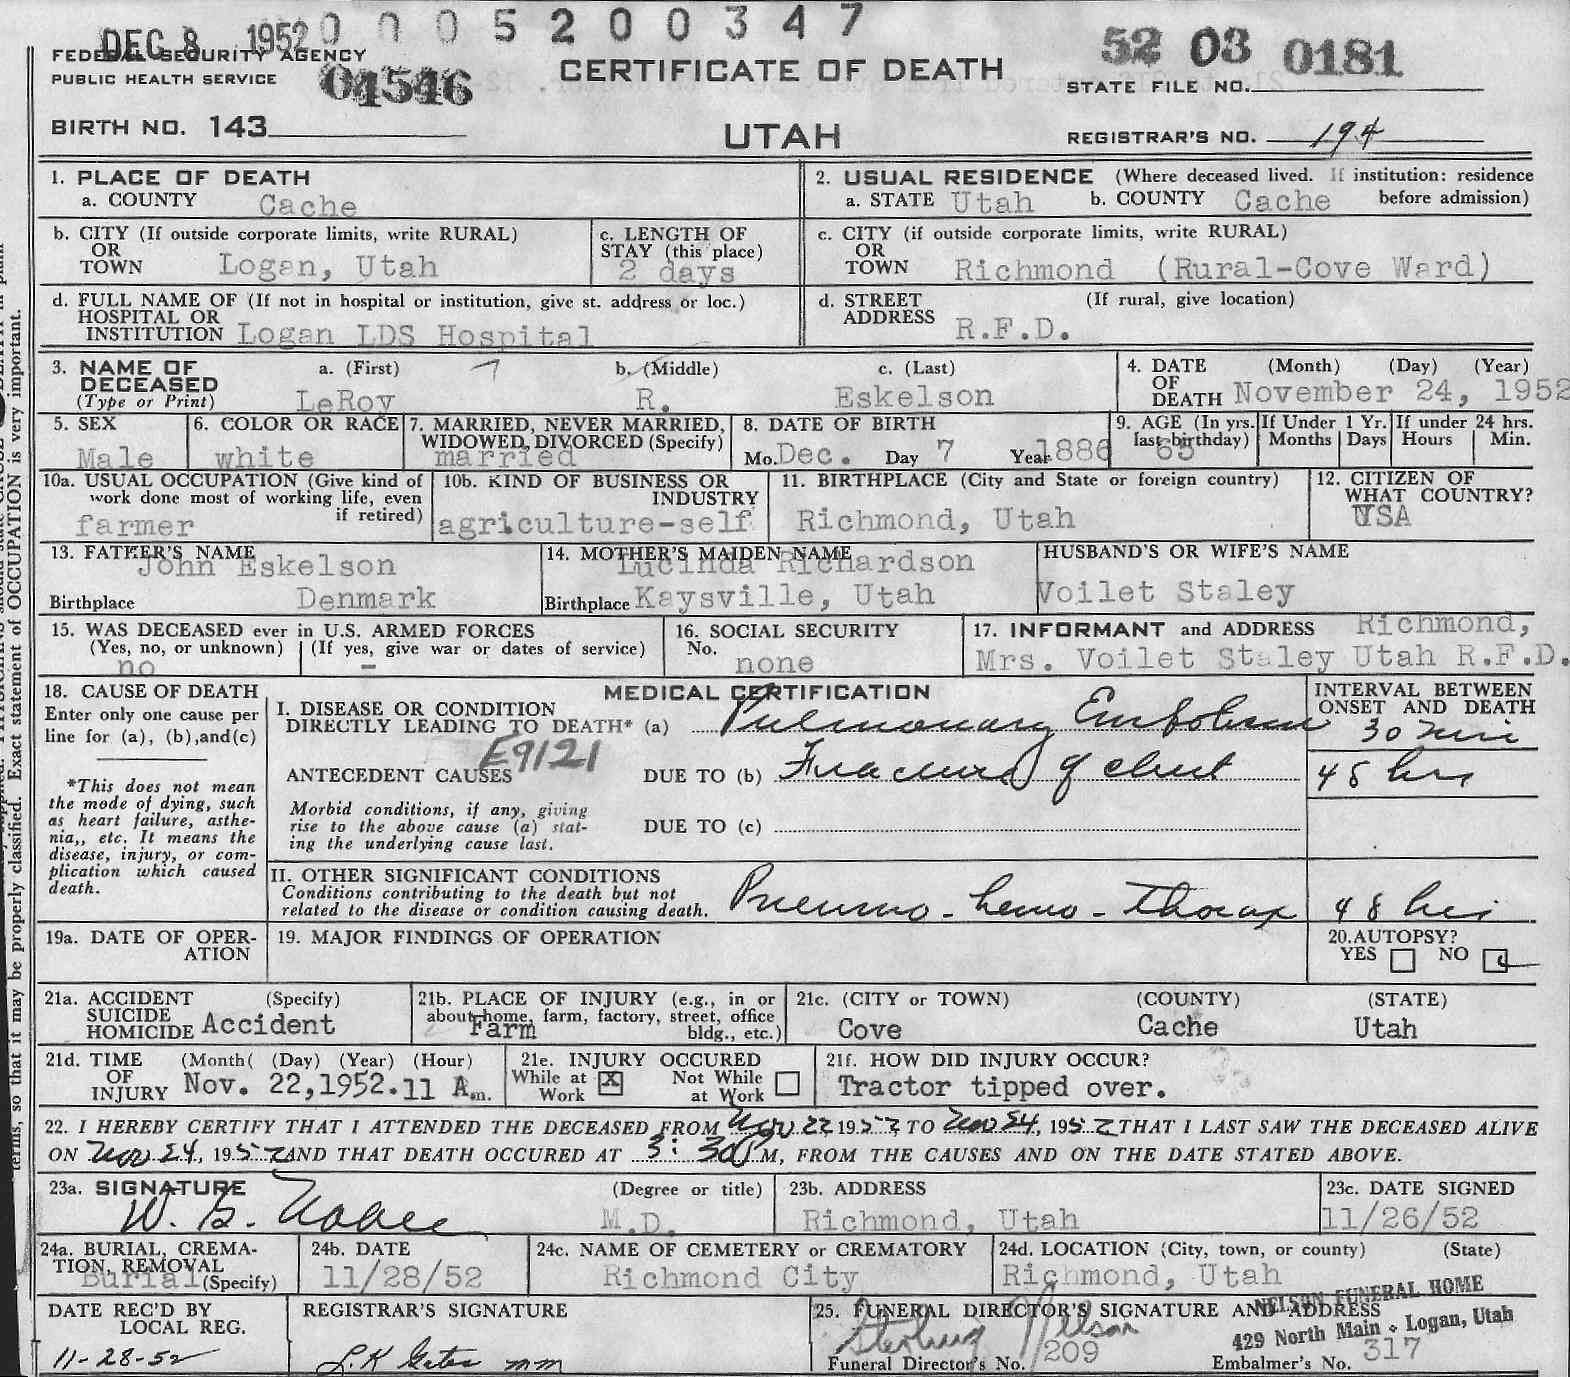 DEC 8 1952 0 0 0 5 2 0 0 3 4 7
52 03 0181
FEDERAL SECURITY AGENCY
PUBLIC HEALTH SERVICE
04546
CERTIFICATE OF DEATH
STATE FILE NO.
BIRTH NO. 143
UTAH
REGISTRAR'S NO. 194
1. PLACE OF DEATH
a. COUNTY Cache
2. USUAL RESIDENCE (Where deceased lived. If institution: residence before admission)
a. STATE Utah b. COUNTY Cache
b. CITY (If outside corporate limits, write RURAL)
OR
TOWN Logan, Utah
c. LENGTH OF
STAY (this place)
2 days
c. CITY (if outside corporate limits, write RURAL)
OR
TOWN Richmond (Rural-Cove Ward)
d. FULL NAME OF (If not in hospital or institution, give st. address or loc.)
HOSPITAL OR
INSTITUTION Logan LDS Hospital
d. STREET (If rural, give location)
ADDRESS R.F.D.
3. NAME OF a. (First) b. (Middle) c. (Last)
DECEASED
(Type or Print) LeRoy R. Eskelson
4. DATE (Month) (Day) (Year)
OF
DEATH November 24, 1952
5. SEX
Male
6. COLOR OR RACE
white
7. MARRIED, NEVER MARRIED,
WIDOWED, DIVORCED (Specify)
married
8. DATE OF BIRTH
Mo. Dec. Day 7 Year 1886
9. AGE (In yrs. last birthday)
65
If Under 1 Yr.
Months Days
If under 24 hrs.
Hours Min.
10a. USUAL OCCUPATION (Give kind of
work done most of working life, even
if retired)
farmer
10b. KIND OF BUSINESS OR
INDUSTRY
agriculture-self
11. BIRTHPLACE (City and State or foreign country)
Richmond, Utah
12. CITIZEN OF
WHAT COUNTRY?
USA
13. FATHER'S NAME
John Eskelson
Birthplace Denmark
14. MOTHER'S MAIDEN NAME
Lucinda Richardson
Birthplace Kaysville, Utah
HUSBAND'S OR WIFE'S NAME
Voilet Staley
15. WAS DECEASED ever in U.S. ARMED FORCES
(Yes, no, or unknown) (If yes, give war or dates of service)
no -
16. SOCIAL SECURITY
No.
none
17. INFORMANT and ADDRESS Richmond,
Mrs. Voilet Staley Utah R.F.D.
18. CAUSE OF DEATH
Enter only one cause per
line for (a), (b),and(c)
*This does not mean
the mode of dying, such
as heart failure, asthe-
nia,, etc. It means the
disease, injury, or com-
plication which caused
death.
MEDICAL CERTIFICATION
I. DISEASE OR CONDITION
DIRECTLY LEADING TO DEATH* (a) Pulmonary Embolism
E9121
ANTECEDENT CAUSES DUE TO (b) Fractured of chest
Morbid conditions, if any, giving
rise to the above cause (a) stat-
ing the underlying cause last.
DUE TO (c)
INTERVAL BETWEEN
ONSET AND DEATH
30 min
48 hrs
II. OTHER SIGNIFICANT CONDITIONS
Conditions contributing to the death but not
related to the disease or condition causing death.
Pneumo-hemo-thorax 48 hrs
19a. DATE OF OPER-
ATION
19. MAJOR FINDINGS OF OPERATION
20.AUTOPSY?
YES NO
21a. ACCIDENT (Specify)
SUICIDE
HOMICIDE Accident
21b. PLACE OF INJURY (e.g., in or
about home, farm, factory, street, office
bldg., etc.)
Farm
21c. (CITY or TOWN) (COUNTY) (STATE)
Cove Cache Utah
21d. TIME (Month( (Day) (Year) (Hour)
OF
INJURY Nov. 22,1952.11 A.m.
21e. INJURY OCCURED
While at Work X Not While at Work
21f. HOW DID INJURY OCCUR?
Tractor tipped over.
22. I HEREBY CERTIFY THAT I ATTENDED THE DECEASED FROM Nov 22 1952 TO Nov 24, 1952 THAT I LAST SAW THE DECEASED ALIVE
ON Nov 24, 1952 AND THAT DEATH OCCURED AT 3:30 P M, FROM THE CAUSES AND ON THE DATE STATED ABOVE.
23a. SIGNATURE (Degree or title)
W. G. M.D.
23b. ADDRESS
Richmond, Utah
23c. DATE SIGNED
11/26/52
24a. BURIAL, CREMA-
TION, REMOVAL
Burial (Specify)
24b. DATE
11/28/52
24c. NAME OF CEMETERY or CREMATORY
Richmond City
24d. LOCATION (City, town, or county) (State)
Richmond, Utah
DATE REC'D BY
LOCAL REG.
11-28-52
REGISTRAR'S SIGNATURE
mm
25. FUNERAL DIRECTOR'S SIGNATURE AND ADDRESS
Sterling Nelson
NELSON FUNERAL HOME
429 North Main Logan, Utah
Funeral Director's No. 209
Embalmer's No. 317
terms, so that it may be properly classified. Exact statement of OCCUPATION is very important.